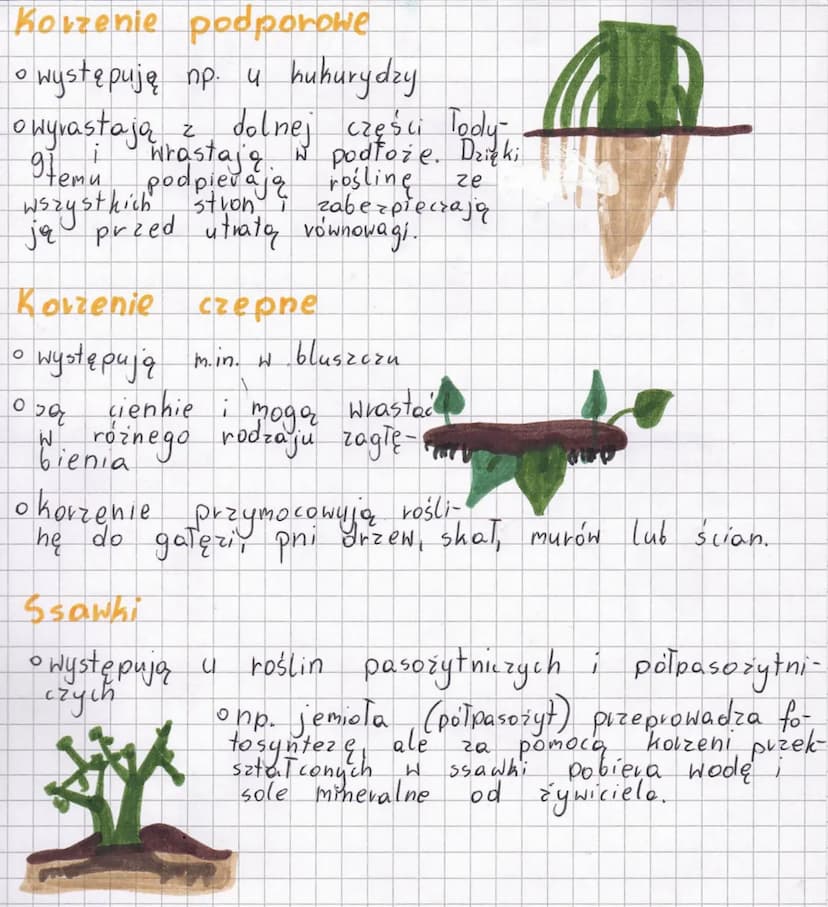 Korzenie podporowe
○ występują np. u kukurydzy
○ wyrastają z dolnej części łody-
gi i wrastają w podłoże. Dzięki
temu podpierają roślinę ze
wszystkich stron i zabezpieczają
ją przed utratą równowagi.
Korzenie czepne
○ występują m.in. w bluszczu
○ są cienkie i mogą wrastać
w różnego rodzaju zagłę-
bienia
○ korzenie przymocowują rośli-
nę do gałęzi, pni drzew, skał, murów lub ścian.
Ssawki
○ występują u roślin pasożytniczych i półpasożytni-
czych
○ np. jemioła (półpasożyt) przeprowadza fo-
tosyntezę, ale za pomocą korzeni przek-
ształconych w ssawki pobiera wodę i
sole mineralne od żywiciela.